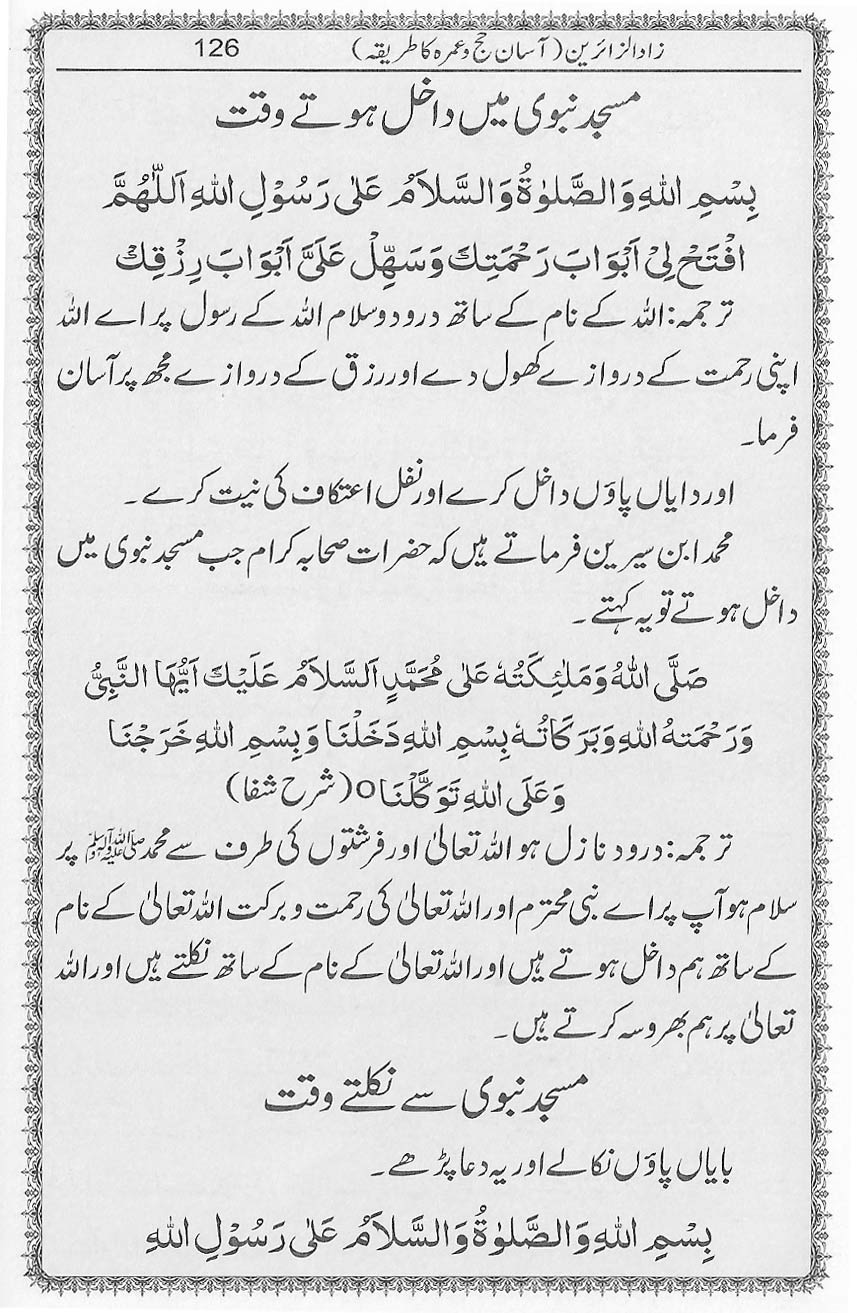 زاد الزائرین (آسان حج و عمرہ کا طریقہ) 126
مسجد نبوی میں داخل ہوتے وقت
بِسْمِ اللهِ وَالصَّلٰوةُ وَالسَّلَامُ عَلٰى رَسُوْلِ اللهِ اَللّٰهُمَّ
افْتَحْ لِىْ اَبْوَابَ رَحْمَتِكَ وَسَهِّلْ عَلَىَّ اَبْوَابَ رِزْقِكَ
ترجمہ: اللہ کے نام کے ساتھ درود و سلام اللہ کے رسول پر اے اللہ
اپنی رحمت کے دروازے کھول دے اور رزق کے دروازے مجھ پر آسان
فرما۔
اور دایاں پاؤں داخل کرے اور نفل اعتکاف کی نیت کرے۔
محمد ابن سیرین فرماتے ہیں کہ حضرات صحابہ کرام جب مسجد نبوی میں
داخل ہوتے تو یہ کہتے۔
صَلَّى اللهُ وَمَلٰئِكَتُهٗ عَلٰى مُحَمَّدٍ اَلسَّلَامُ عَلَيْكَ اَيُّهَا النَّبِىُّ
وَرَحْمَتهُ اللهِ وَبَرَكَاتُهٗ بِسْمِ اللهِ دَخَلْنَا وَبِسْمِ اللهِ خَرَجْنَا
وَعَلَى اللهِ تَوَكَّلْنَاO (شرح شفا)
ترجمہ: درود نازل ہو اللہ تعالیٰ اور فرشتوں کی طرف سے محمد ﷺ پر
سلام ہو آپ پر اے نبی محترم اور اللہ تعالیٰ کی رحمت و برکت اللہ تعالیٰ کے نام
کے ساتھ ہم داخل ہوتے ہیں اور اللہ تعالیٰ کے نام کے ساتھ نکلتے ہیں اور اللہ
تعالیٰ پر ہم بھروسہ کرتے ہیں۔
مسجد نبوی سے نکلتے وقت
بایاں پاؤں نکالے اور یہ دعا پڑھے۔
بِسْمِ اللهِ وَالصَّلٰوةُ وَالسَّلَامُ عَلٰى رَسُوْلِ اللهِ